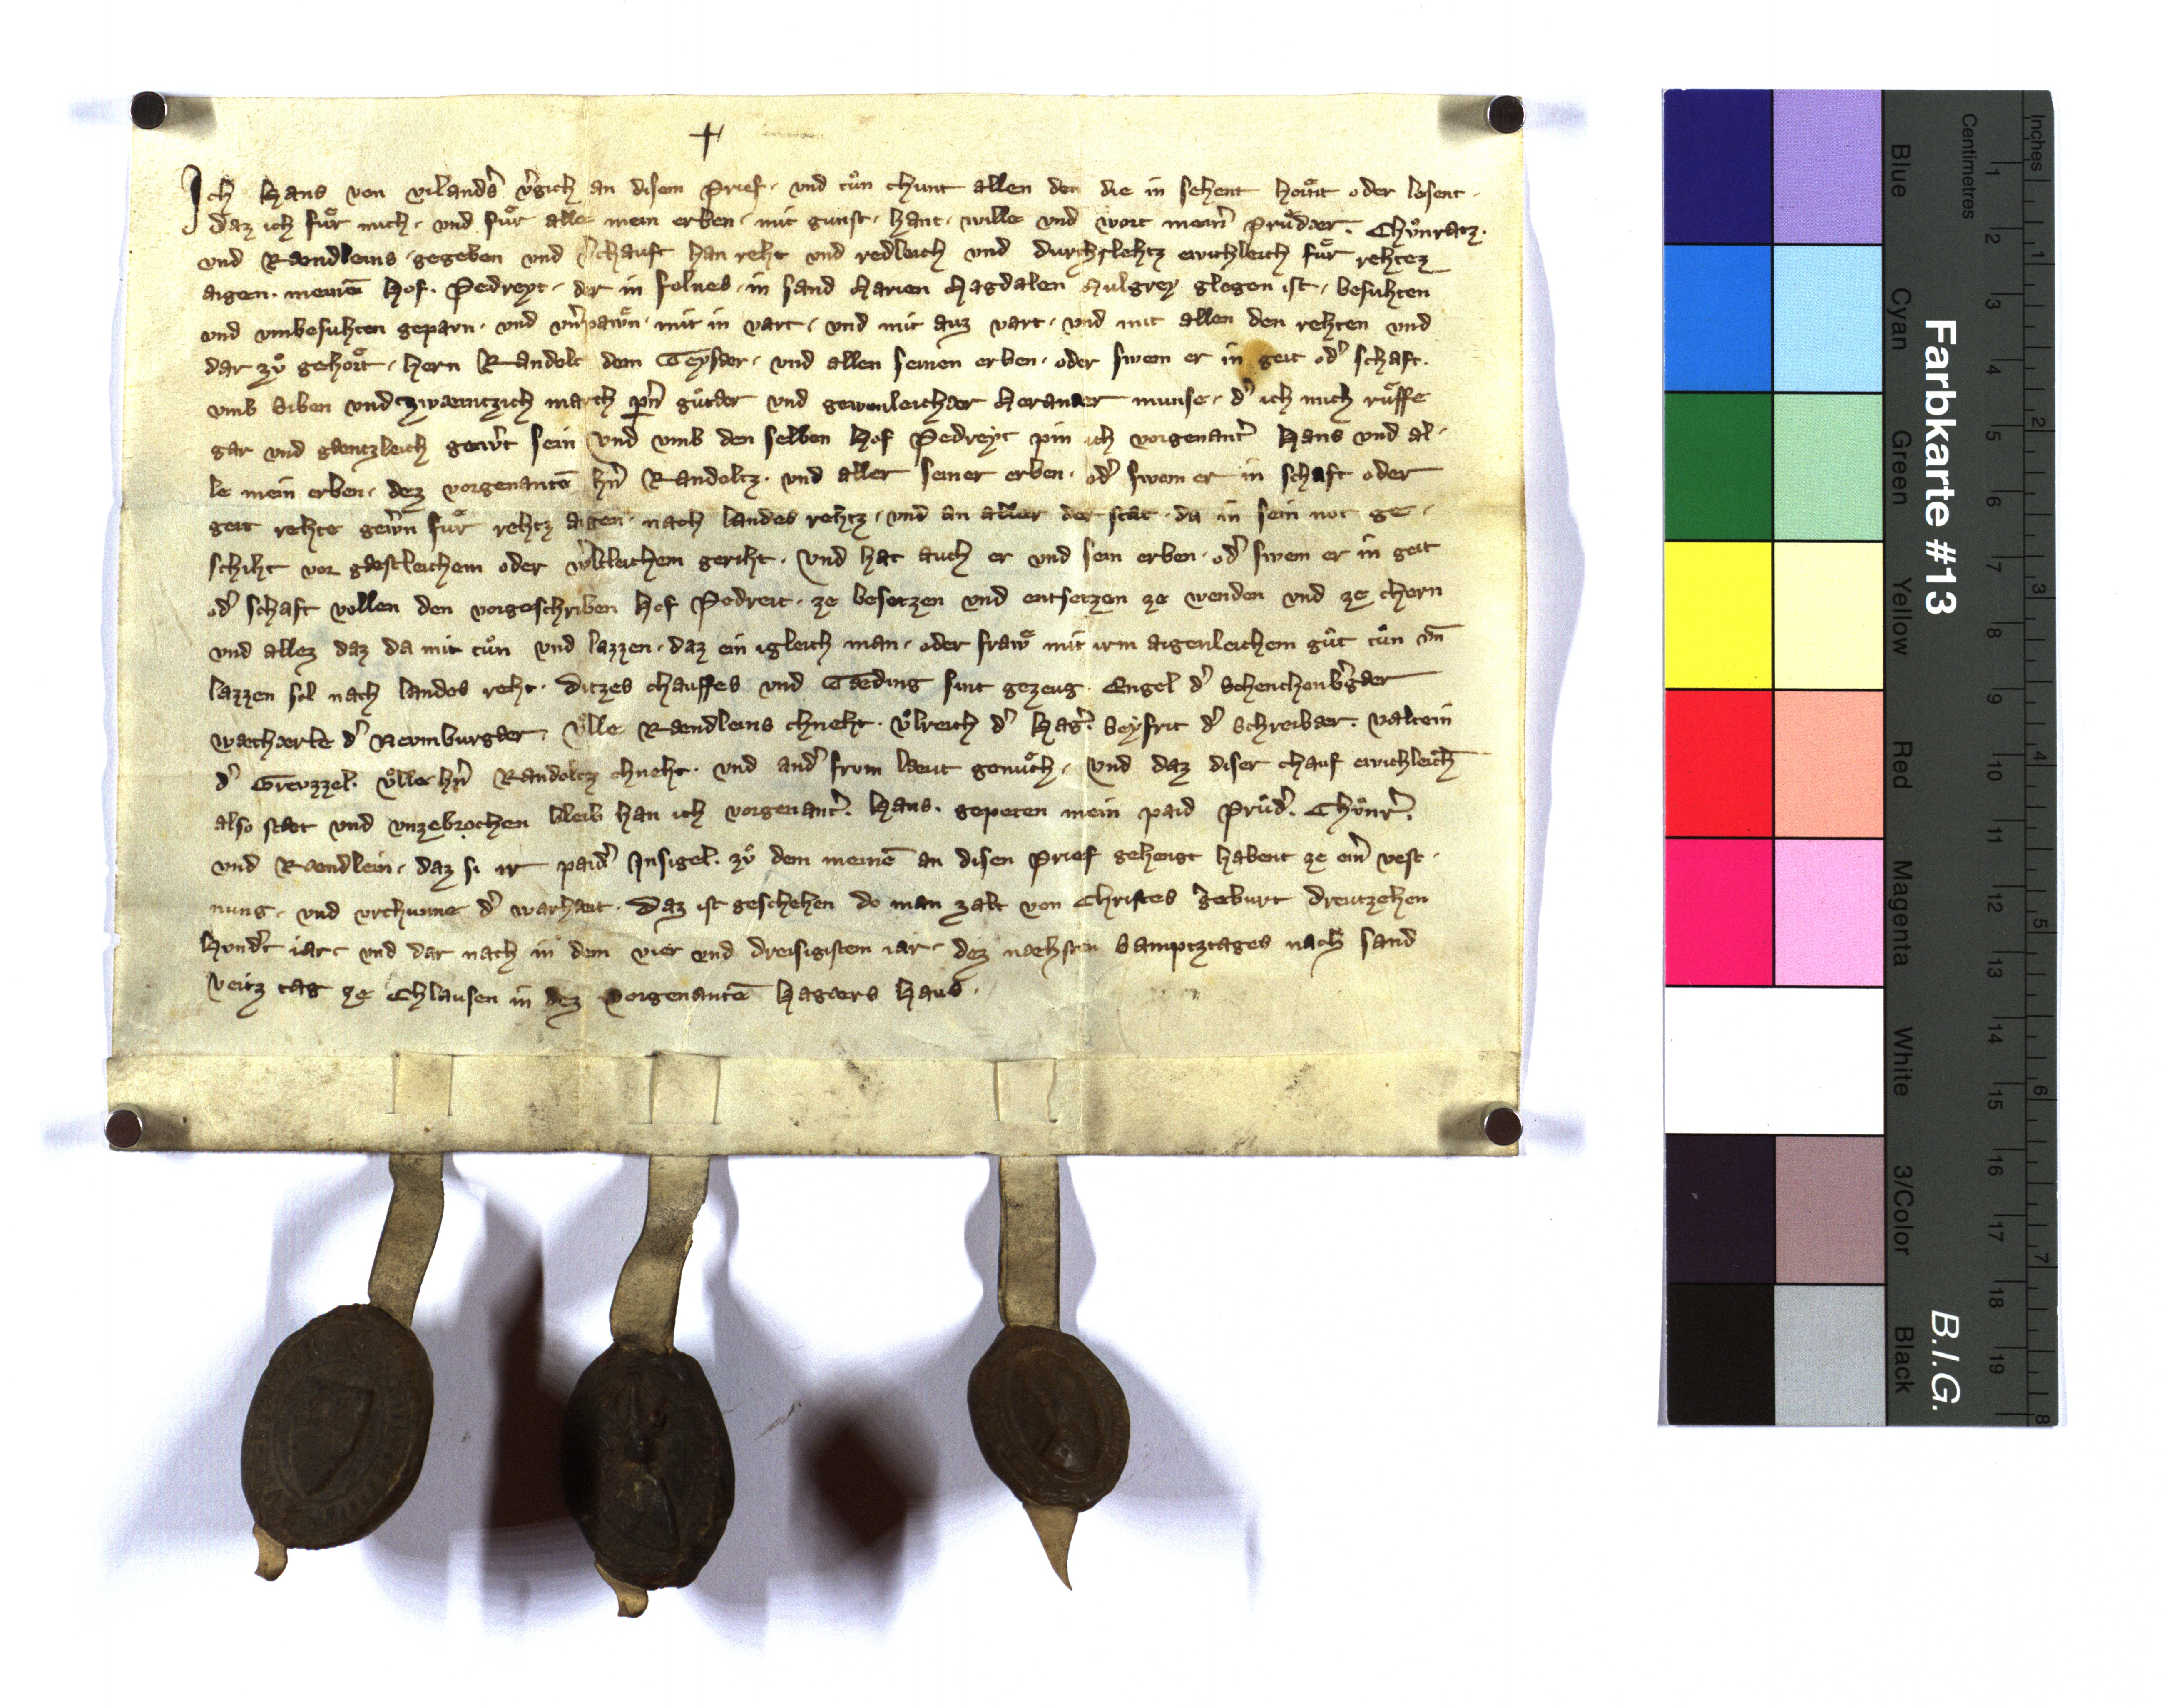 Ich Hans von vilandˢ vˢgich an disem Prief · vnd tůn chunt allen den die in sehent hoͤrnt oder lesent ·
daz ich fuͤr mich · vnd fuͤr alle mein erben · mit gunst · hant · wille vnd wort meinˢ Pruͤdær · Chuͦnratz ·
vnd Rændleins · gegeben vnd vˢchauft han reht vnd redleich vnd durchslehtz ewichleich fuͤr rehtez
aigen · meinē Hof · Pedreyt · der in folnes · in sand Marien Magdalen Mulgrey glegen ist · besuhten
vnd vmbesuhten geparn · vnd vnˢpawͤn · mit in vart · vnd mit auz vart · vnd mit allen den rehten vnd
dar zuͦ gehoͤrt · hern Randolt dem Teyser · vnd allen seinen erben · oder swem er in geit odˢ schaft ·
vmb siben vnd zwæintzich march pˢnˢ guͤtær vnd gewonleichær Meranær munse · dˢ ich mich ruͤffe
gar vnd gæntzleich gewˢt sein vnd vmb den selben Hof Pedreyt pin ich vorgenantˢ Hans vnd al ·
le mein erben · dez vorgenantē hˢn Randoltz · vnd aller seiner erben · odˢ swem er in schaft oder
geit rehte gewˢn fuͤr rehtz aigen · nach landes rehtz · vnd an aller der stat · da in sein not ge ·
schiht vor gæstleichem oder wˢltleichem geriht · Vnd hat auch er vnd sein erben · odˢ swem er in geit
odˢ schaft vollen den vorgeschriben Hof Pedreit · ze besetzen vnd entsetzen ze wenden vnd ze chern
vnd allez daz da mit tůn vnd lazzen · daz ein igleich man · oder frawͤ mit irm aigenleichem guͤt tůn vn̄
lazzen sol nach landes reht · Ditzes chauffes vnd Tæding sint gezeug · Engel dˢ Schenchenbˢgær
wæchærle dˢ Neymburgær · Vͦlle Rændleins chneht · Vͦlreich dˢ Hagˢ · Seyfrit dˢ Schreibær · Valtein
dˢ Grevzzel · Vͦlle hˢn Randoltz chneht · vnd andˢ from læut genuͤch · Vnd daz diser chauf ewichleich
also stæt vnd vnzebrochen bleib han ich vorgenantˢ · Hans · gepeten mein paid Pruͤdˢ · Chuͦnrˢ ·
vnd Rændlein · daz si ir paidˢ Insigel · zuͦ dem meinē an disen Prief gehengt habent ze einˢ vest ·
nung · vnd vrchunne dˢ warhæit · Daz ist geschehen do man zalt von Christes geburt dreutzehen
Hvndˢt iar · vnd dar nach in dem vier vnd dreisigistem iar · dez næhsten Samptztages nach sand
Veitz tag ze Chlausen in dez vorgenantē Hagærs Haus ·
Inches
Centimetres
1 2 3 4 5 6 7 8 9 10 11 12 13 14 15 16 17 18 19
1 2 3 4 5 6 7 8
Blue Cyan Green Yellow Red Magenta White 3/Color Black
Farbkarte #13 B.I.G.